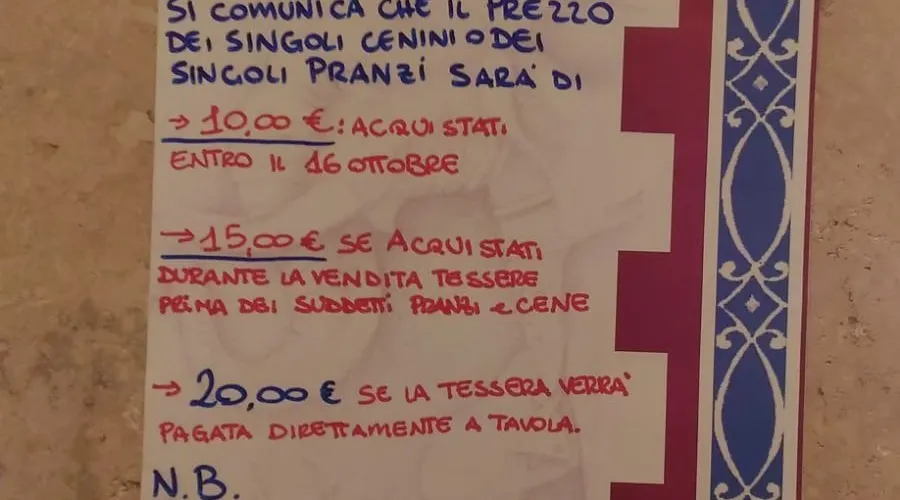 SI COMUNICA CHE IL PREZZO
DEI SINGOLI CENINI O DEI
SINGOLI PRANZI SARÀ DI
→ 10,00 €: ACQUISTATI
ENTRO IL 16 OTTOBRE
→ 15,00 € SE ACQUISTATI
DURANTE LA VENDITA TESSERE
PRIMA DEI SUDDETTI PRANZI e CENE
→ 20,00 € SE LA TESSERA VERRA'
PAGATA DIRETTAMENTE A TAVOLA.
N.B.